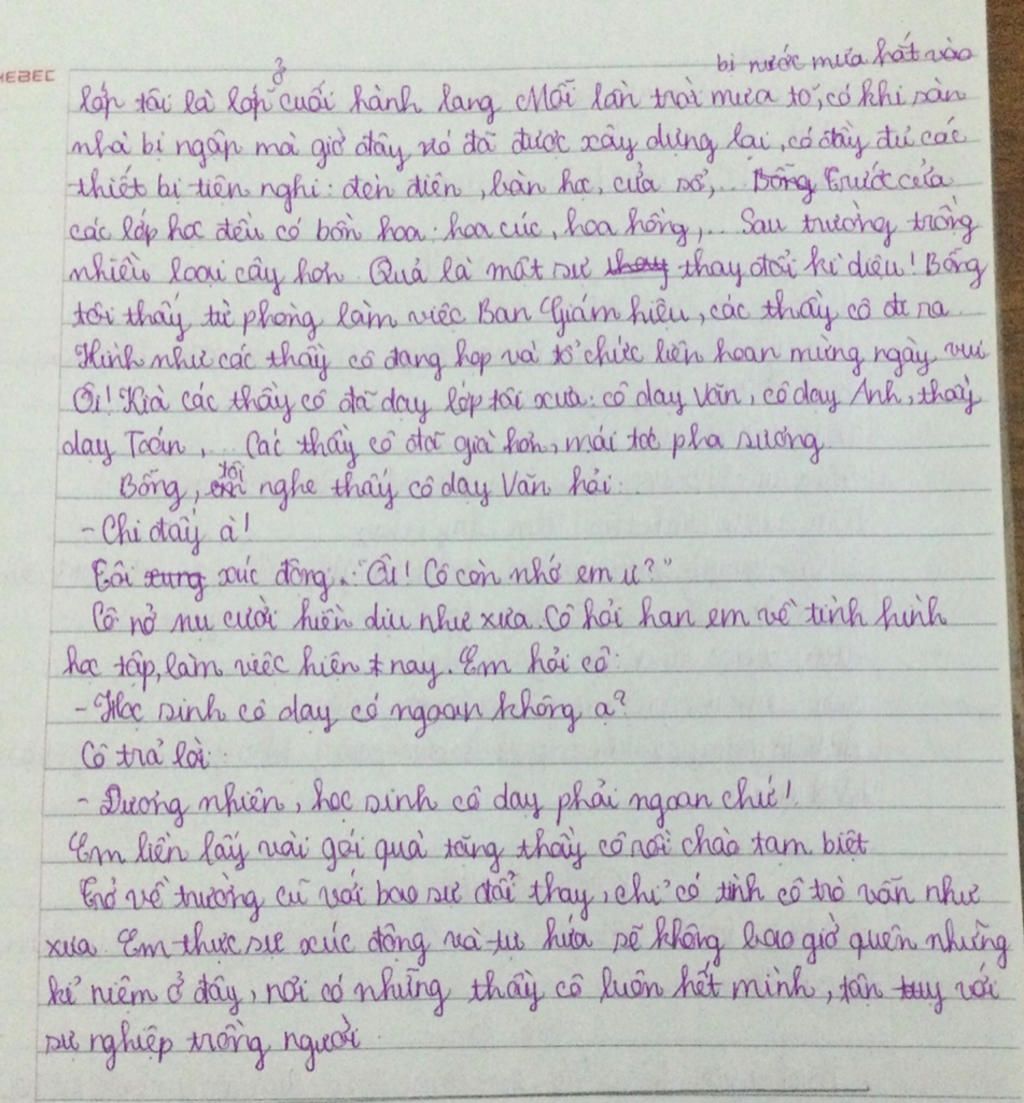 HEBEC
ở
bị nước mưa hắt vào
lớp tôi là lớp cuối hành lang Mỗi lần trời mưa to, có khi sàn
nhà bị ngập mà giờ đây nó đã được xây dựng lại, có đầy đủ các
thiết bị tiện nghi: đèn điện, bàn học, cửa sổ,... Bỗng Trước cửa
các lớp học đều có bồn hoa: hoa cúc, hoa hồng,... Sau trường trồng
nhiều loại cây hơn. Quả là một sự thay thay đổi kì diệu! Bỗng
tôi thấy từ phòng làm việc Ban Giám hiệu, các thầy cô đi ra.
Hình như các thầy cô đang họp và tổ chức liên hoan mừng ngày vui
Ôi! Kìa các thầy cô đã dạy lớp tôi xưa: cô dạy Văn, cô dạy Anh, thầy
dạy Toán,... Các thầy cô đã già hơn, mái tóc pha sương
tôi
Bỗng, em nghe thấy cô dạy Văn hỏi:
- Chi đấy à!
Tôi xung xúc động: "Ôi! Cô còn nhớ em ư?"
Cô nở nụ cười hiền dịu như xưa. Cô hỏi han em về tình hình
học tập, làm việc hiện nay. Em hỏi cô:
- Học sinh cô dạy có ngoan không ạ?
Cô trả lời:
- Đương nhiên, học sinh cô dạy phải ngoan chứ!
Em liền lấy vài gói quà tặng thầy cô rồi chào tạm biệt
Trở về trường cũ với bao sự đổi thay, chỉ có tình cô trò vẫn như
xưa. Em thực sự xúc động và tự hứa sẽ không bao giờ quên những
kỉ niệm ở đây, nơi có những thầy cô luôn hết mình, tận tuỵ với
sự nghiệp trồng người.